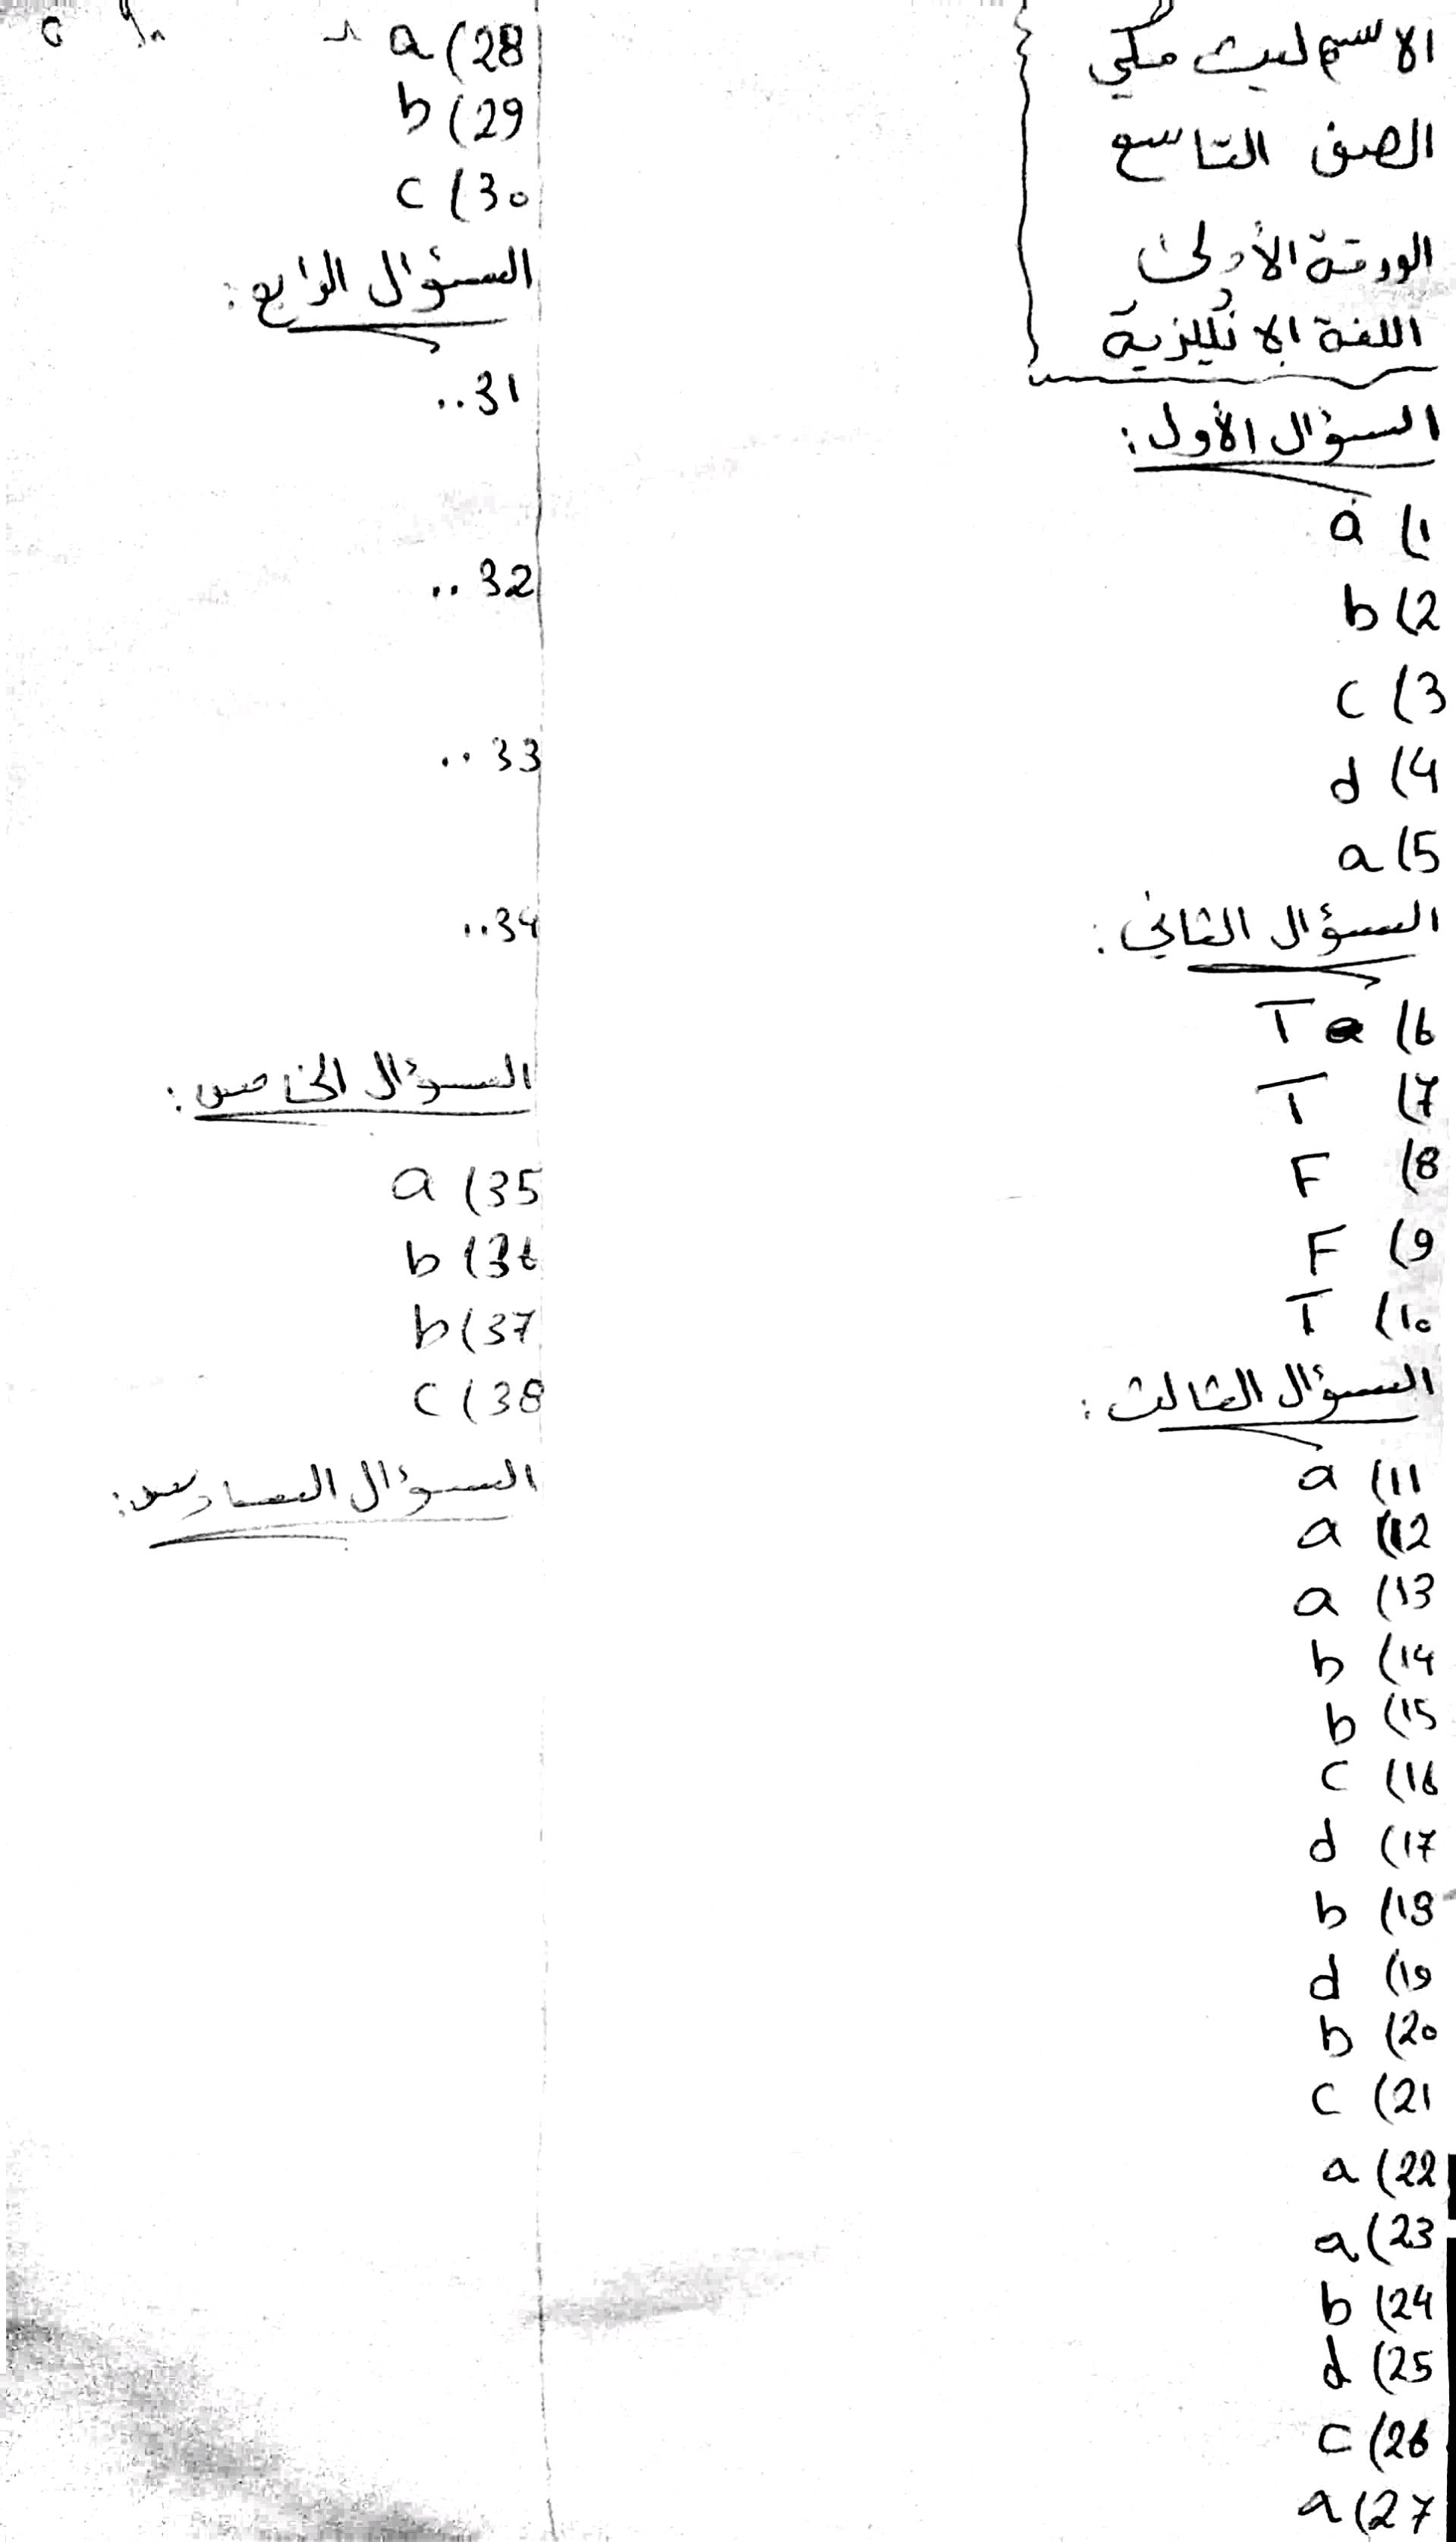 الاسم ليث مكي
الصف التاسع
الورقة الأولى
اللغة الإنكليزية
السؤال الأول:
1) a
2) b
3) c
4) d
5) a
السؤال الثاني:
6) T
7) T
8) F
9) F
10) T
السؤال الثالث:
11) a
12) a
13) a
14) b
15) b
16) c
17) d
18) b
19) d
20) b
21) c
22) a
23) a
24) b
25) d
26) c
27) a
28) a
29) b
30) c
السؤال الرابع:
31..
32..
33..
34..
السؤال الخامس:
35) a
36) b
37) b
38) c
السؤال السادس: